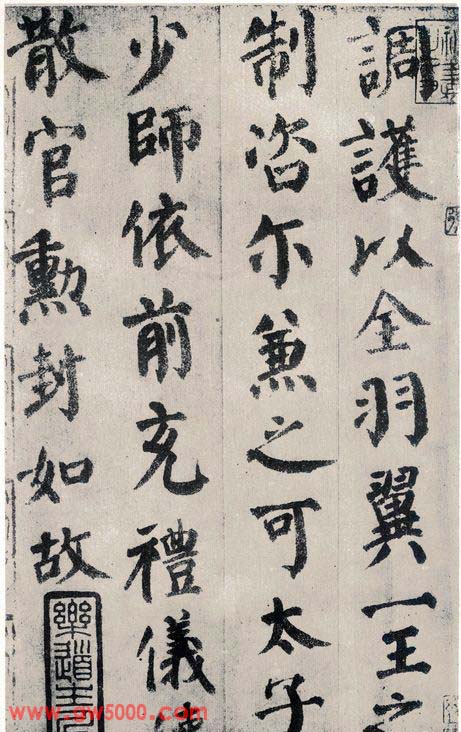 調護以全羽翼一王之
制咨尔兼之可太子
少師依前充禮儀使
散官勳封如故
樂道主人
www.gw5000.com